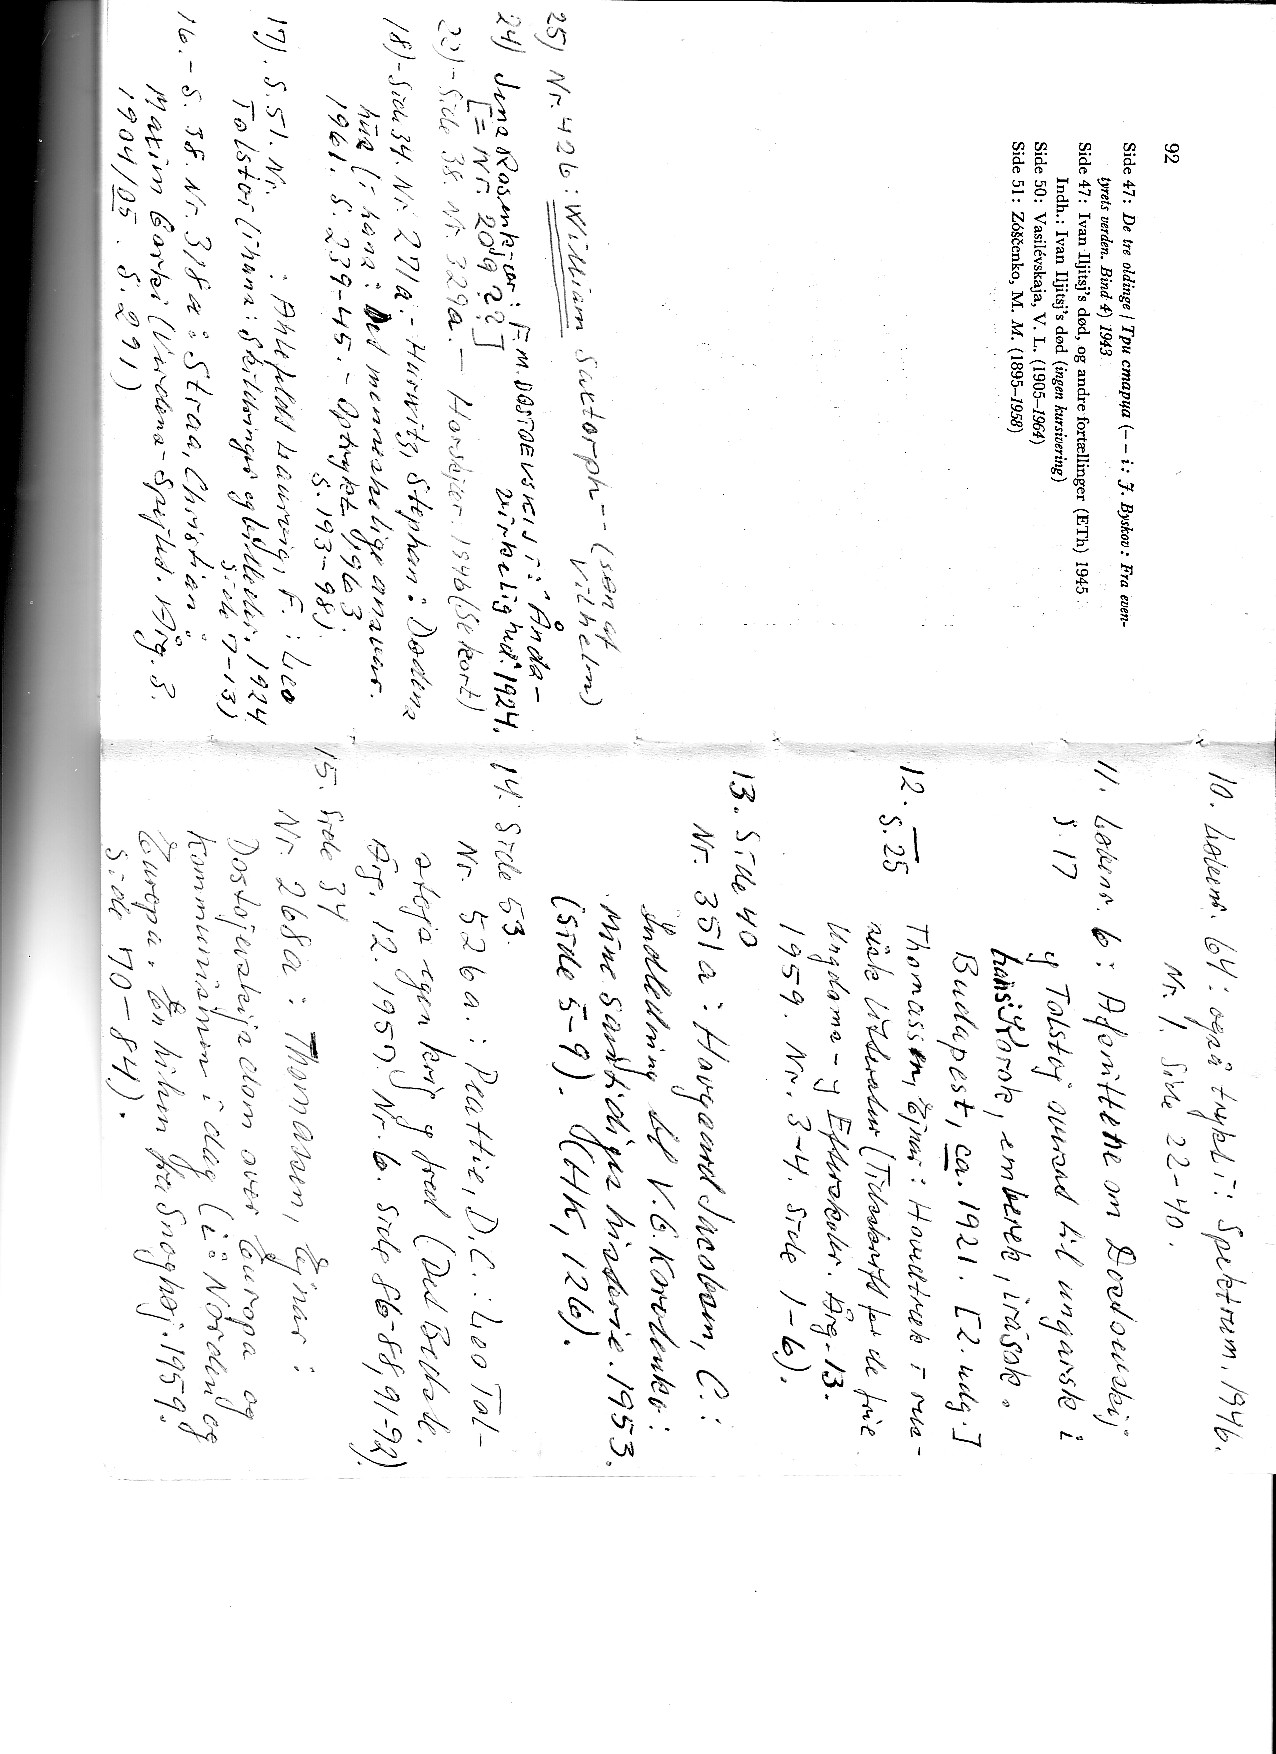 92
Side 47: De tre oldinge / Три старца (– – i: J. Byskov: Fra even-
tyrets verden. Bind 4) 1943
Side 47: Ivan Iljitsj's død, og andre fortællinger (ETh) 1945
Indh.: Ivan Iljitsj's død (ingen kursivering)
Side 50: Vasilévskaja, V. L. (1905–1964)
Side 51: Zóščenko, M. M. (1895–1958)
25) Nr. 426: William Saxtorph -- (søn af
Vilhelm)
24) Rosenkjær: F.M. DOSTOEVSKIJ i: Ånds-
[= Nr. 209 ??] virkelighed. 1924.
- Side 38. Nr. 329a. — Horskjær. 1946 (Se kort)
18) - Side 34. Nr. 271a. - Hurwitz, Stephan: Dødens
hus (i hans: Det menneskelige ansvar.
1961. S. 239-45. - Optrykt 1963.
S. 193-98).
17). S. 51. Nr. : Ahlefeldt Laurvig, F.: Leo
Tolstoi (i hans: Skildringer og billeder. 1924
side 7-13)
16. - S. 38. Nr. 318a: Straa, Christian:
Maxim Gorki (Verdens-Spejlet. Årg. 3.
1904/05. S. 291)
10. Løbenr. 64: også trykt i: Spektrum. 1946.
Nr. 1. Side 22-40.
11. Løbenr. 6: Afsnittene om Dostoevskij
S. 17 og Tolstoj svarend til ungarsk i
hans: Korok, emberek, irások.
Budapest, ca. 1921. [2. udg.]
12. S. 25 Thomassen, Ejnar: Hovedtræk i rus-
sisk litteratur (Tidsskrift for de frie
Ungdoms- og Efterskoler. Årg. 13.
1959. Nr. 3-4. Side 1-6).
13. Side 40
Nr. 351a: Hovgaard Jacobsen, C.:
Indledning til V.G. Korolenko:
Min samtidigs historie. 1953.
(Side 5-9). (HK, 126).
14. Side 53.
Nr. 526a.: Peattie, D.C.: Leo Tol-
stojs egen krig og fred (Det Bedste.
Årg. 12. 1957. Nr. 6. Side 86-88, 91-92).
15. Side 34
Nr. 268a: Thomassen, Ejnar:
Dostojevskijs dom over Europa og
kommunismen i dag (i: Norden og
Europa. En hilsen fra Snoghøj. 1959.
Side 70-84).